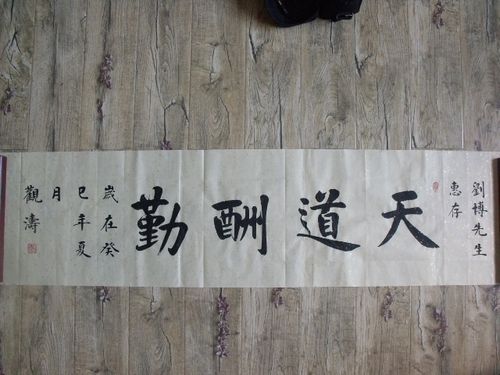 劉博先生
惠存
天道酬勤
歲在癸
巳年夏
月
觀濤